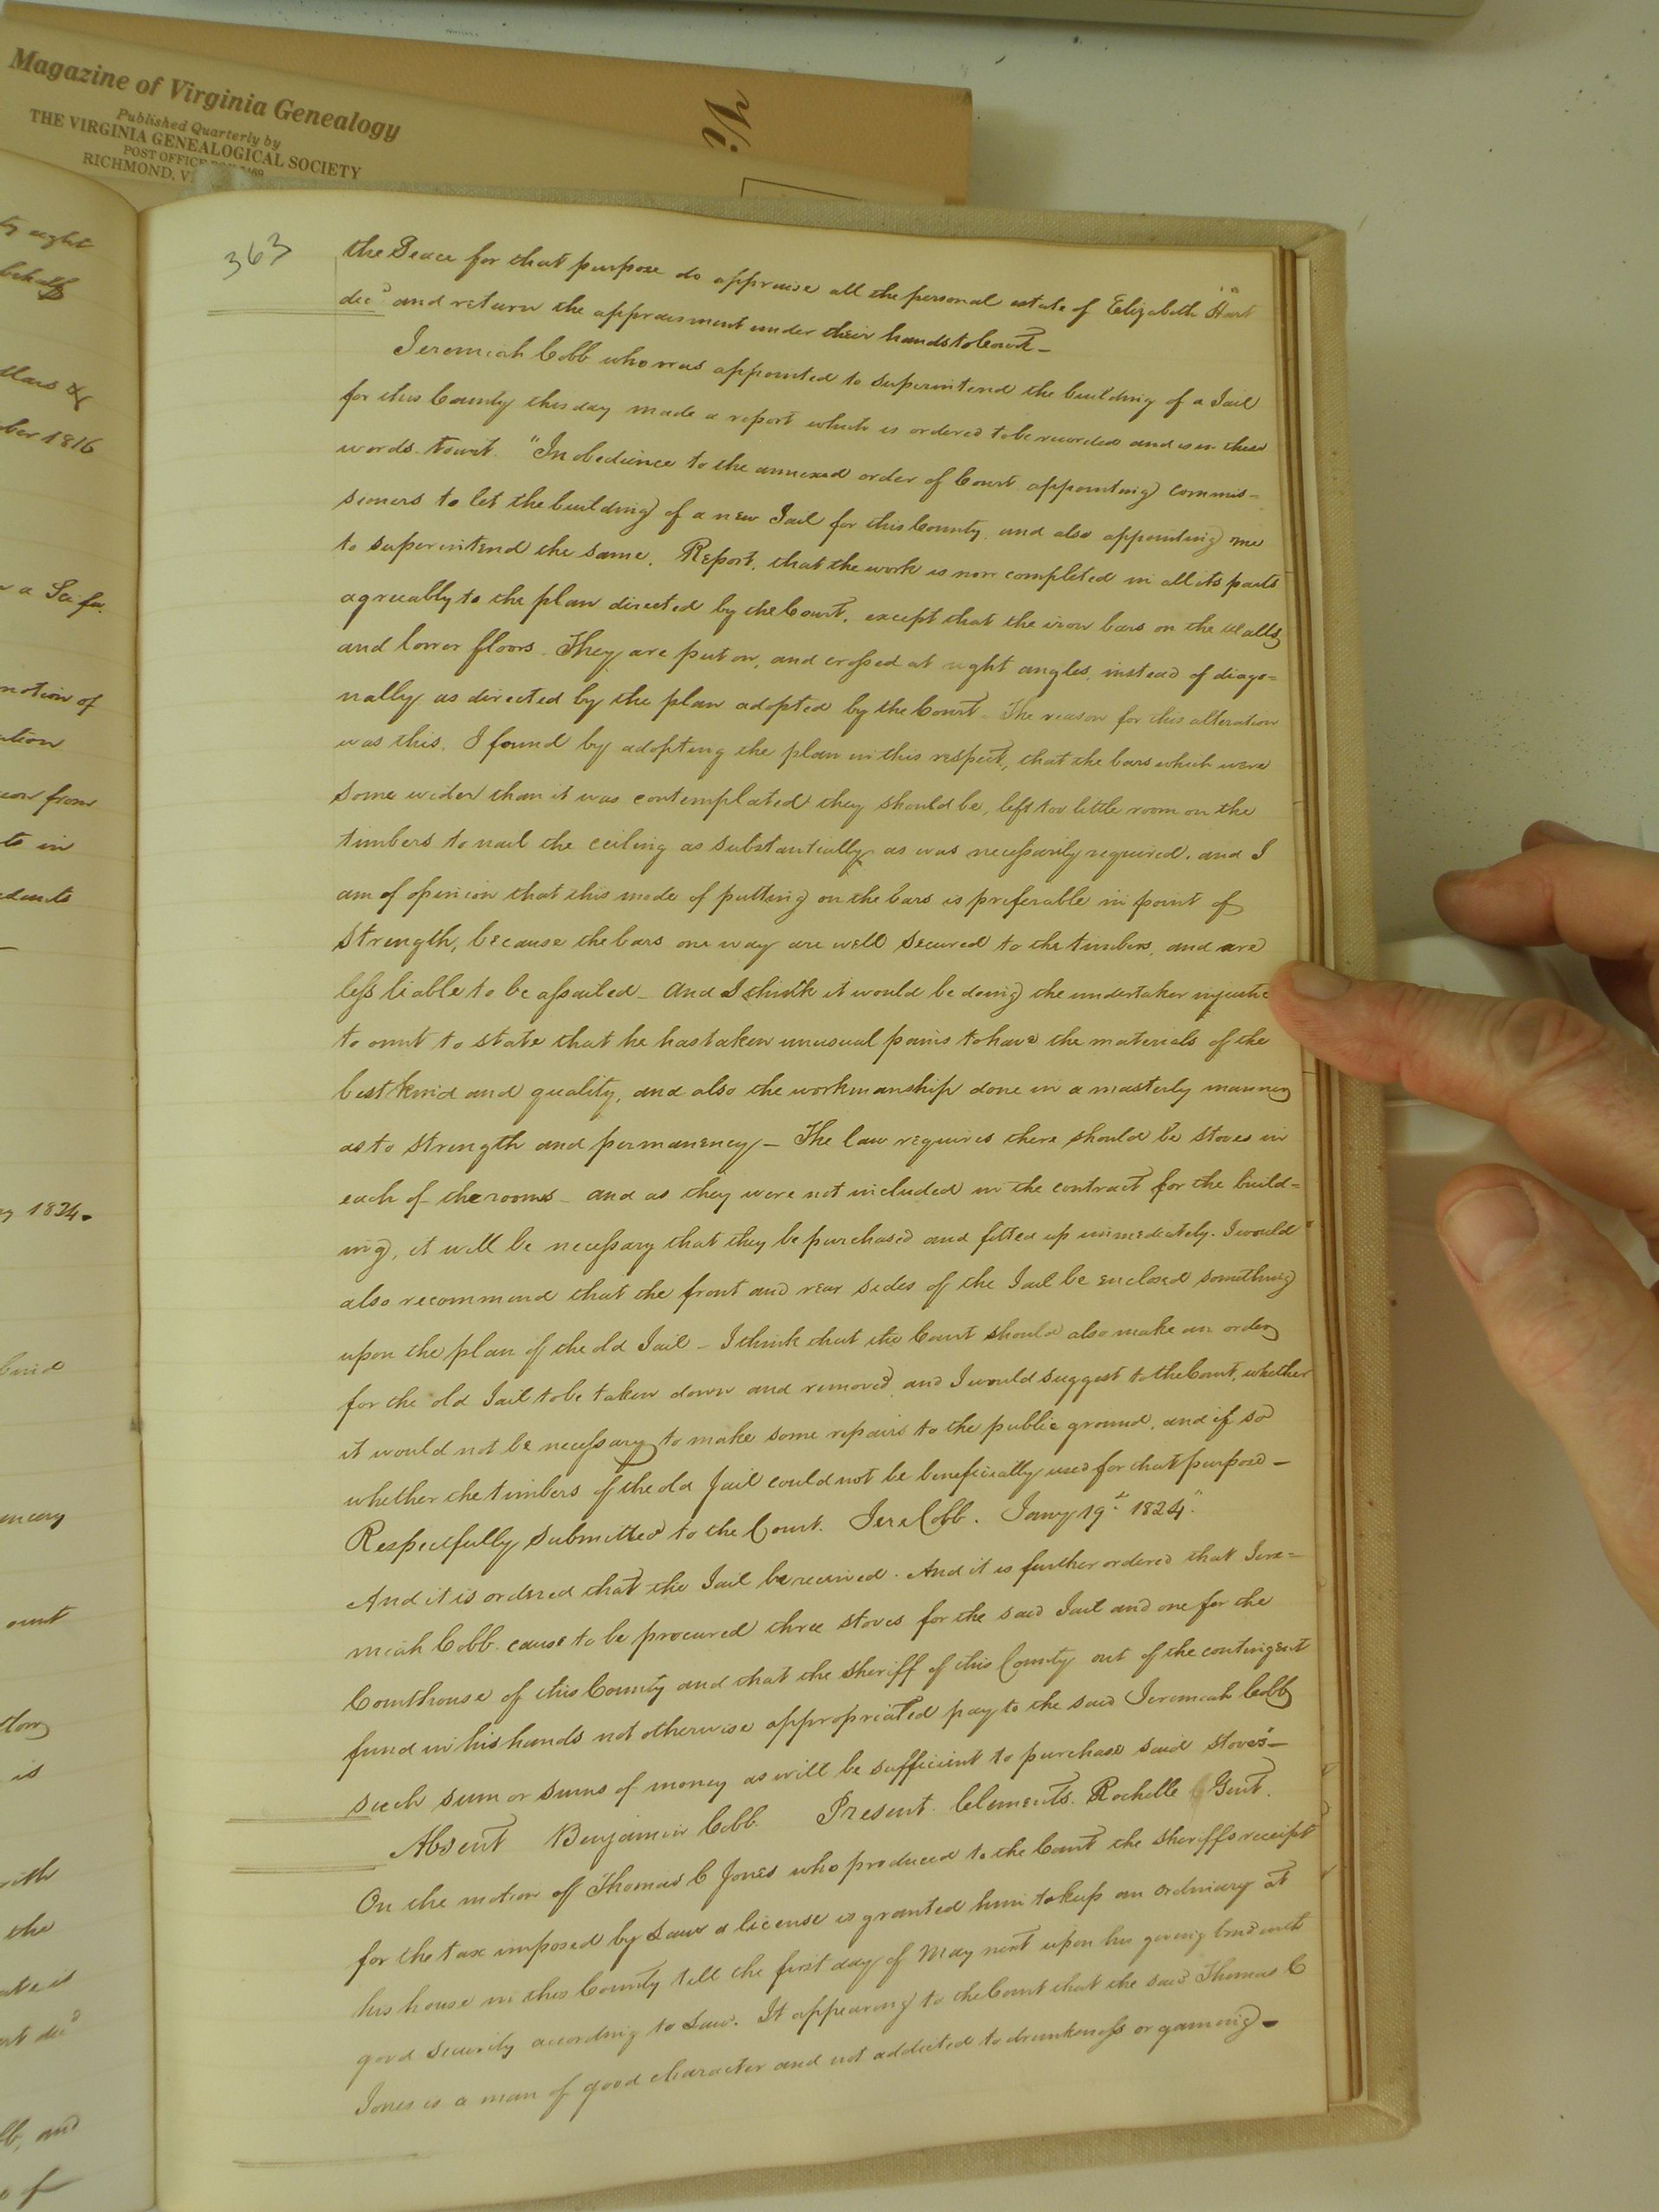 Magazine of Virginia Genealogy
Published Quarterly by
THE VIRGINIA GENEALOGICAL SOCIETY
POST OFFICE
RICHMOND, V
Vi
363
the Peace for that purpose do appraise all the personal estate of Elizabeth Hart
decd and return the appraisment under their hands to Court—
Jeremiah Cobb who was appointed to superintend the building of a Jail
for this County this day made a report which is ordered to be recorded and is in these
words. towit. "In obedience to the annexed order of Court appointing commis=
sioners to let the building of a new Jail for this County, and also appointing me
to superintend the same, Report, that the work is now completed in all its parts
agreeably to the plan directed by the Court, except that the iron bars on the walls
and lower floors. They are put on, and crossed at right angles, instead of diago=
nally as directed by the plan adopted by the Court. The reason for this alteration
was this. I found by adopting the plan in this respect, that the bars which were
some wider than it was contemplated they should be, left too little room on the
timbers to nail the ceiling as substantially as was necessarily required. and I
am of opinion that this mode of putting on the bars is preferable in point of
strength, because the bars one way are well secured to the timbers, and are
less liable to be assailed— and I think it would be doing the undertaker injustice
to omit to state that he has taken unusual pains to have the materials of the
best kind and quality, and also the workmanship done in a masterly manner
as to strength and permanency— The law requires there should be stoves in
each of the rooms— and as they were not included in the contract for the build=
ing, it will be necessary that they be purchased and fitted up immediately. I would
also recommend that the front and rear sides of the Jail be enclosed something
upon the plan of the old Jail— I think that the Court should also make an order
for the old Jail to be taken down and removed, and I would suggest to the Court, whether
it would not be necessary to make some repairs to the public ground, and if so
whether the timbers of the old Jail could not be beneficially used for that purpose—
Respectfully submitted to the Court. Jere Cobb. Jany 19t 1824."
And it is ordered that the Jail be received. And it is further ordered that Jere=
miah Cobb cause to be procured three stoves for the said Jail and one for the
Courthouse of this County and that the Sheriff of this County out of the contingent
fund in his hands not otherwise appropriated pay to the said Jeremiah Cobb
such sum or sums of money as will be sufficient to purchase said stoves—
Absent Benjamin Cobb. Present Clements. Rochelle Gent.
On the motion of Thomas C Jones who produced to the Court the sheriffs receipt
for the tax imposed by Law a license is granted him to keep an ordinary at
his house in this County till the first day of May next upon his giving bond with
good security according to Law. It appearing to the Court that the said Thomas C
Jones is a man of good character and not addicted to drunkeness or gaming—
ty eight
behalf
llars &
ber 1816
a Sci fa.
motion of
ation
from
to in
dants
1824.
ount
is
with
the
decd
and
of